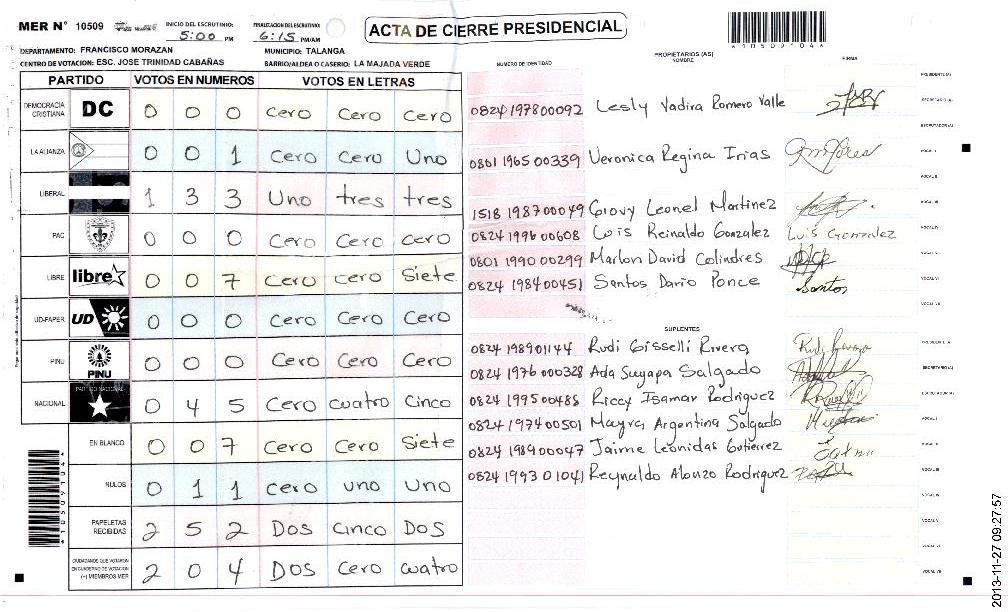 MER N° 10509
INICIO DEL ESCRUTINIO: 5:00 PM
FINALIZACION DEL ESCRUTINIO: 6:15 PM/AM
ACTA DE CIERRE PRESIDENCIAL
*10509104*
DEPARTAMENTO: FRANCISCO MORAZAN
MUNICIPIO: TALANGA
CENTRO DE VOTACION: ESC. JOSE TRINIDAD CABAÑAS
BARRIO/ALDEA O CASERIO: LA MAJADA VERDE
NUMERO DE IDENTIDAD
PROPIETARIOS (AS)
NOMBRE
FIRMA
PARTIDO VOTOS EN NUMEROS VOTOS EN LETRAS
DEMOCRACIA CRISTIANA DC 0 0 0 Cero Cero Cero
LA ALIANZA 0 0 1 Cero Cero Uno
LIBERAL 1 3 3 Uno tres tres
PAC 0 0 0 Cero Cero Cero
LIBRE libre 0 0 7 Cero Cero Siete
UD-FAPER UD 0 0 0 Cero Cero Cero
PINU PINU 0 0 0 Cero Cero Cero
NACIONAL PARTIDO NACIONAL 0 4 5 Cero cuatro Cinco
EN BLANCO 0 0 7 Cero Cero Siete
NULOS 0 1 1 Cero uno Uno
PAPELETAS RECIBIDAS 2 5 2 Dos Cinco Dos
CIUDADANOS QUE VOTARON EN CUADERNO DE VOTACION (+) MIEMBROS MER 2 0 4 Dos Cero cuatro
0824 1978 00092 Lesly Yadira Romero Valle
0801 1965 00339 Veronica Regina Irias
1518 1987 00049 Giovy Leonel Martinez
0824 1996 00608 Luis Reinaldo Gonzalez Luis Gonzalez
0801 1990 00299 Marlon David Colindres
0824 1984 00451 Santos Dario Ponce Santos
SUPLENTES
0824 1989 01144 Rudi Gisselli Rivera
0824 1976 000328 Ada Suyapa Salgado
0824 1995 00488 Riccy Isamar Rodriguez
0824 1974 00501 Mayra Argentina Salgado
0824 1989 00047 Jaime Leonidas Gutierrez
0824 1993 01041 Reynaldo Alonzo Rodriguez
PRESIDENTE (A)
SECRETARIO (A)
ESCRUTADOR (A)
VOCAL I
VOCAL II
VOCAL III
VOCAL IV
VOCAL V
VOCAL VI
VOCAL VII
PRESIDENTE (A)
SECRETARIO (A)
ESCRUTADOR (A)
VOCAL I
VOCAL II
VOCAL III
VOCAL IV
VOCAL V
VOCAL VI
VOCAL VII
*10509104*
2013-11-27 09:27:57